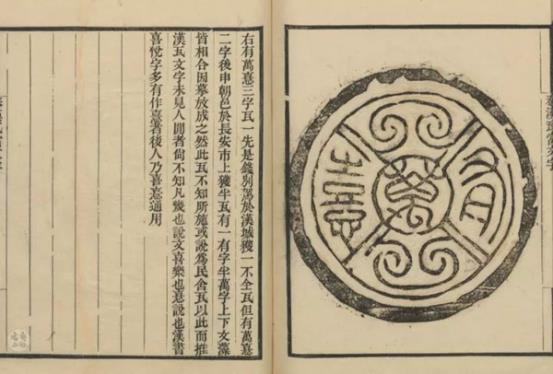 有
萬
憙
右有萬憙三字瓦一先是錢別駕於漢城獲一不全瓦但有萬憙
二字後申朝邑於長安市上獲半瓦有一有字半萬字上下文藻
皆相合因摹放成之然此瓦不知所施或說爲民舍瓦以此而推
漢瓦文字未見人間者尙不知凡幾也說文喜樂也憙說也漢書
喜悅字多有作憙者後人乃喜憙通用